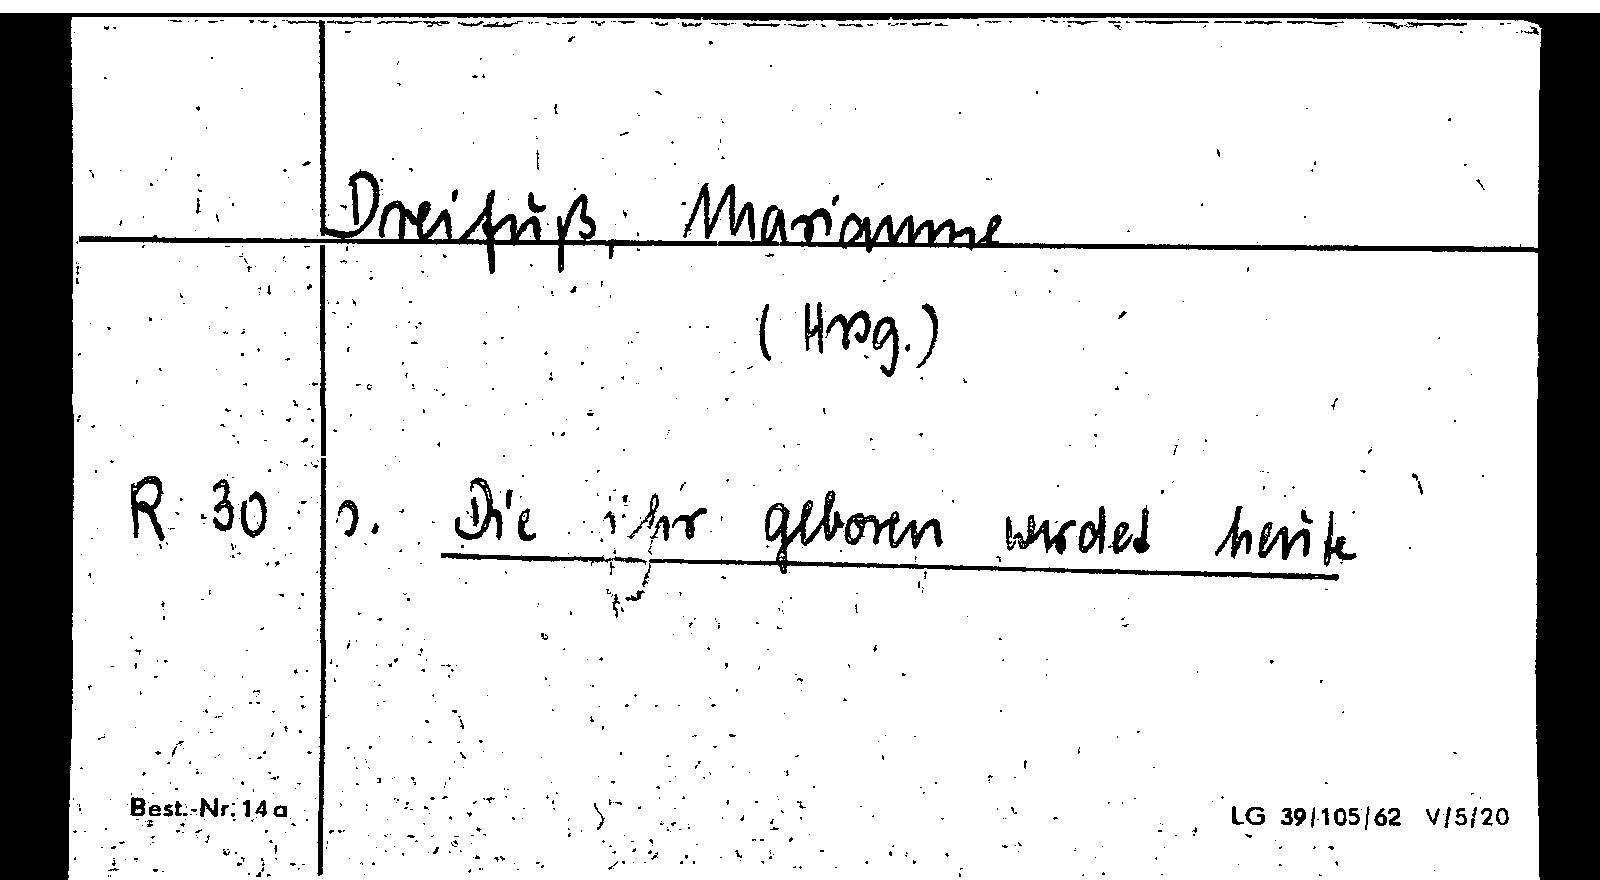 Dreifuß, Marianne
(Hrsg.)
R 30 s. Die ihr geboren werdet heute
Best.-Nr. 14a LG 39/105/62 V/5/20